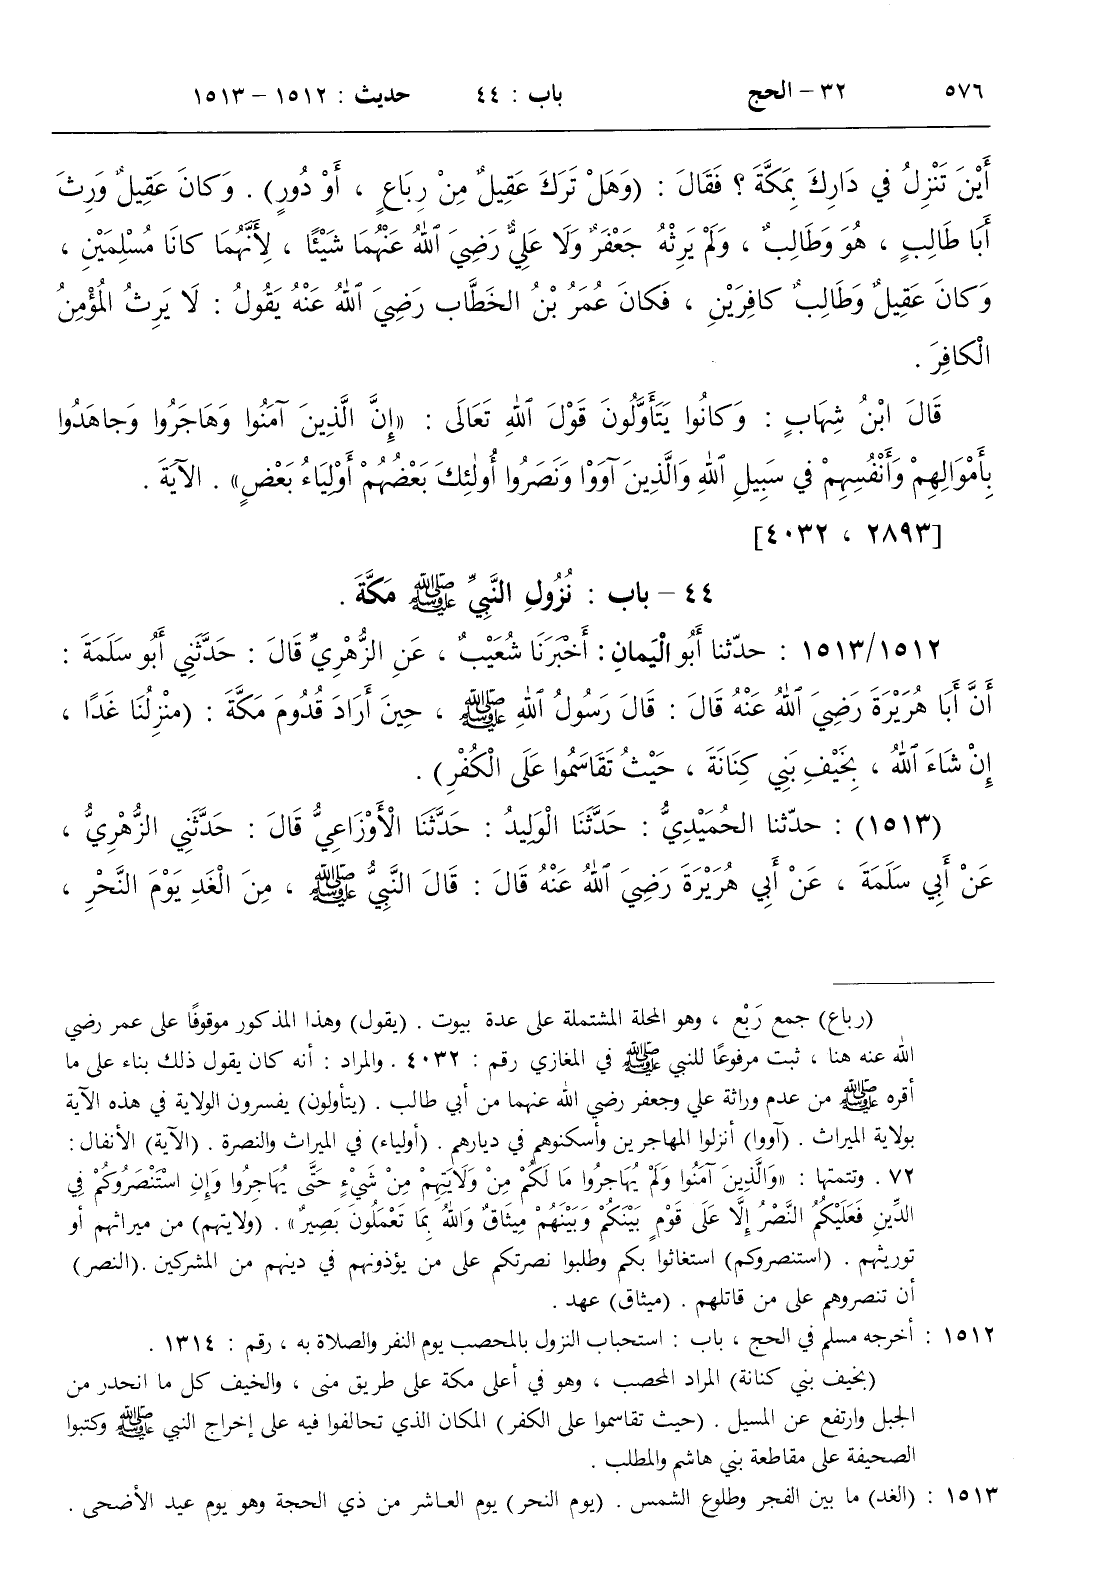 ٥٧٦ ٣٢ – الحج باب : ٤٤ حديث : ١٥١٢ – ١٥١٣
أَيْنَ تَنْزِلُ في دَارِكَ بِمَكَّةَ ؟ فَقَالَ : (وَهَلْ تَرَكَ عَقِيلٌ مِنْ رِبَاعٍ ، أَوْ دُورٍ) . وَكانَ عَقِيلٌ وَرِثَ
أَبَا طَالِبٍ ، هُوَ وَطَالِبٌ ، وَلَمْ يَرِثْهُ جَعْفَرٌ وَلَا عَلِيٌّ رَضِيَ ٱللهُ عَنْهُمَا شَيْئًا ، لِأَنَّهُمَا كانَا مُسْلِمَيْنِ ،
وَكانَ عَقِيلٌ وَطَالِبٌ كافِرَيْنِ ، فَكانَ عُمَرُ بْنُ الخَطَّاب رَضِيَ ٱللهُ عَنْهُ يَقُولُ : لَا يَرِثُ الْمُؤْمِنُ
الْكافِرَ .
قَالَ ابْنُ شِهَابٍ : وَكانُوا يَتَأَوَّلُونَ قَوْلَ ٱللهِ تَعَالَى : «إِنَّ الَّذِينَ آمَنُوا وَهَاجَرُوا وَجاهَدُوا
بِأَمْوَالِهِمْ وَأَنْفُسِهِمْ في سَبِيلِ ٱللهِ وَالَّذِينَ آوَوْا وَنَصَرُوا أُولٰئِكَ بَعْضُهُمْ أَوْلِيَاءُ بَعْضٍ» . الآيَةَ .
[٢٨٩٣ ، ٤٠٣٢]
٤٤ – باب : نُزُولِ النَّبِيِّ ﷺ مَكَّةَ .
١٥١٣/١٥١٢ : حدّثنا أَبُو الْيَمانِ : أَخْبَرَنَا شُعَيْبٌ ، عَنِ الزُّهْرِيِّ قَالَ : حَدَّثَنِي أَبُو سَلَمَةَ :
أَنَّ أَبَا هُرَيْرَةَ رَضِيَ ٱللهُ عَنْهُ قَالَ : قَالَ رَسُولُ ٱللهِ ﷺ ، حِينَ أَرَادَ قُدُومَ مَكَّةَ : (مَنْزِلُنَا غَدًا ،
إِنْ شَاءَ ٱللهُ ، بِخَيْفِ بَنِي كِنَانَةَ ، حَيْثُ تَقَاسَمُوا عَلَى الْكُفْرِ) .
(١٥١٣) : حدّثنا الحُمَيْدِيُّ : حَدَّثَنَا الْوَلِيدُ : حَدَّثَنَا الْأَوْزَاعِيُّ قَالَ : حَدَّثَنِي الزُّهْرِيُّ ،
عَنْ أَبِي سَلَمَةَ ، عَنْ أَبِي هُرَيْرَةَ رَضِيَ ٱللهُ عَنْهُ قَالَ : قَالَ النَّبِيُّ ﷺ ، مِنَ الْغَدِ يَوْمَ النَّحْرِ ،
(رباع) جمع رَبْع ، وهو المحلة المشتملة على عدة بيوت . (يقول) وهذا المذكور موقوفًا على عمر رضي
الله عنه هنا ، ثبت مرفوعًا للنبي ﷺ في المغازي رقم : ٤٠٣٢ . والمراد : أنه كان يقول ذلك بناء على ما
أقره ﷺ من عدم وراثة علي وجعفر رضي الله عنهما من أبي طالب . (يتأولون) يفسرون الولاية في هذه الآية
بولاية الميراث . (آووا) أنزلوا المهاجرين وأسكنوهم في ديارهم . (أولياء) في الميراث والنصرة . (الآية) الأنفال :
٧٢ . وتتمتها : «وَالَّذِينَ آمَنُوا وَلَمْ يُهَاجِرُوا مَا لَكُمْ مِنْ وَلَايَتِهِمْ مِنْ شَيْءٍ حَتَّى يُهَاجِرُوا وَإِنِ اسْتَنْصَرُوكُمْ فِي
الدِّينِ فَعَلَيْكُمُ النَّصْرُ إِلَّا عَلَى قَوْمٍ بَيْنَكُمْ وَبَيْنَهُمْ مِيثَاقٌ وَاللهُ بِمَا تَعْمَلُونَ بَصِيرٌ» . (ولايتهم) من ميراثهم أو
توريثهم . (استنصروكم) استغاثوا بكم وطلبوا نصرتكم على من يؤذونهم في دينهم من المشركين .(النصر)
أن تنصروهم على من قاتلهم . (ميثاق) عهد .
١٥١٢ : أخرجه مسلم في الحج ، باب : استحباب النزول بالمحصب يوم النفر والصلاة به ، رقم : ١٣١٤ .
(بخيف بني كنانة) المراد المحصب ، وهو في أعلى مكة على طريق منى ، والخيف كل ما انحدر من
الجبل وارتفع عن المسيل . (حيث تقاسموا على الكفر) المكان الذي تحالفوا فيه على إخراج النبي ﷺ وكتبوا
الصحيفة على مقاطعة بني هاشم والمطلب .
١٥١٣ : (الغد) ما بين الفجر وطلوع الشمس . (يوم النحر) يوم العاشر من ذي الحجة وهو يوم عيد الأضحى .